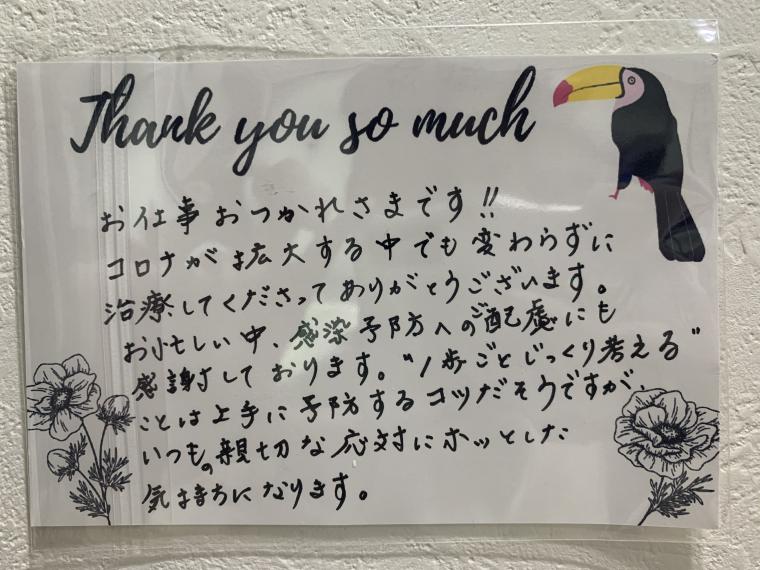 Thank you so much
お仕事おつかれさまです!!
コロナが拡大する中でも変わらずに
治療してくださってありがとうございます。
お忙しい中、感染予防へのご配慮にも
感謝しております。“1歩ごとじっくり考える”
ことは上手に予防するコツだそうですが、
いつもの親切な応対にホッとした
気持ちになります。